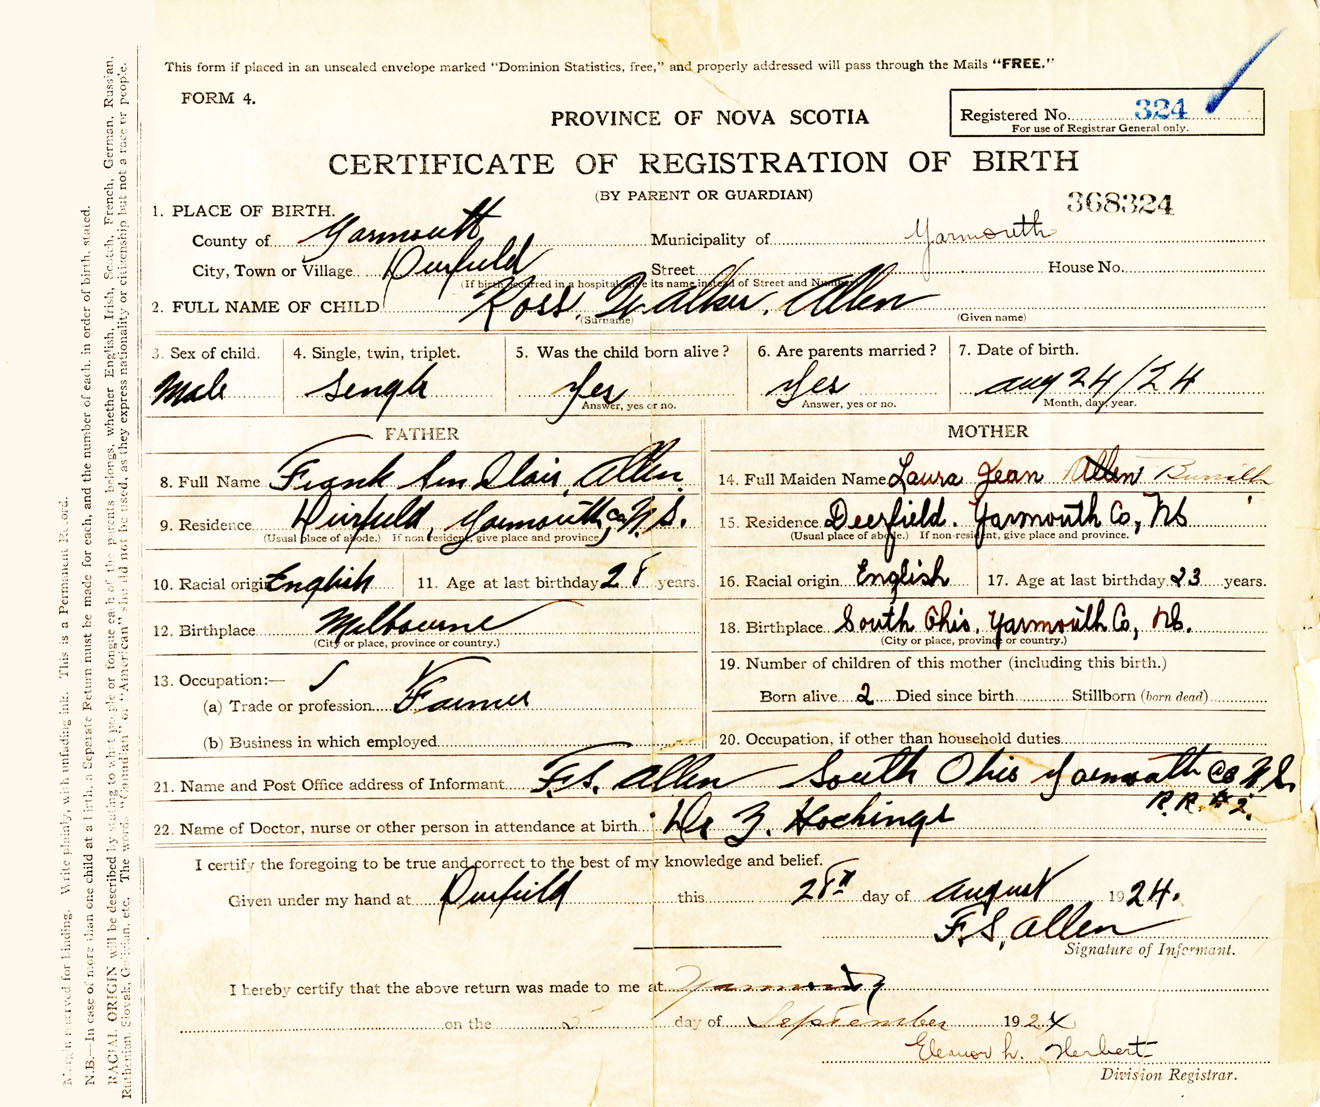 This form if placed in an unsealed envelope marked "Dominion Statistics, free," and properly addressed will pass through the Mails "FREE."
FORM 4.
PROVINCE OF NOVA SCOTIA
Registered No. 324
For use of Registrar General only.
CERTIFICATE OF REGISTRATION OF BIRTH
(BY PARENT OR GUARDIAN)
368324
1. PLACE OF BIRTH.
County of Yarmouth Municipality of Yarmouth
City, Town or Village Deerfield Street House No.
(If birth occurred in a hospital, give its name instead of Street and Number)
2. FULL NAME OF CHILD Ross Walker Allen
(Surname) (Given name)
3. Sex of child. 4. Single, twin, triplet. 5. Was the child born alive? 6. Are parents married? 7. Date of birth.
Male Single Yes Yes Aug 24/24
Answer, yes or no. Answer, yes or no. Month, day, year.
FATHER MOTHER
8. Full Name Frank Sinclair Allen 14. Full Maiden Name Laura Jean Allen
9. Residence Deerfield, Yarmouth Co, N.S. 15. Residence Deerfield. Yarmouth Co, NS
(Usual place of abode.) If non resident, give place and province. (Usual place of abode.) If non-resident, give place and province.
10. Racial origin English 11. Age at last birthday 28 years. 16. Racial origin English 17. Age at last birthday 23 years.
12. Birthplace Melbourne 18. Birthplace South Ohio, Yarmouth Co, NS.
(City or place, province or country.) (City or place, province or country.)
13. Occupation:— 19. Number of children of this mother (including this birth.)
(a) Trade or profession Farmer Born alive 2 Died since birth Stillborn (born dead)
(b) Business in which employed 20. Occupation, if other than household duties
21. Name and Post Office address of Informant F.S. Allen South Ohio Yarmouth Co N.S.
R.R. # 2.
22. Name of Doctor, nurse or other person in attendance at birth Dr Z. Hockings
I certify the foregoing to be true and correct to the best of my knowledge and belief.
Given under my hand at Deerfield this 28th day of August 1924.
F.S. Allen
Signature of Informant.
I hereby certify that the above return was made to me at Yarmouth
on the day of September 1924
Eleanor h. Herbert
Division Registrar.
Margin reserved for binding. Write plainly, with unfading ink. This is a Permanent Record.
N.B.—In case of more than one child at a birth, a Seperate Return must be made for each, and the number of each, in order of birth, stated.
RACIAL ORIGIN will be described by stating to what people or tongue each of the parents belongs, whether English, Irish, Scotch, French, German, Russian,
Ruthenian, Slovak, Galician, etc. The words "Canadian" or "American" should not be used, as they express nationality or citizenship but not a race or people.